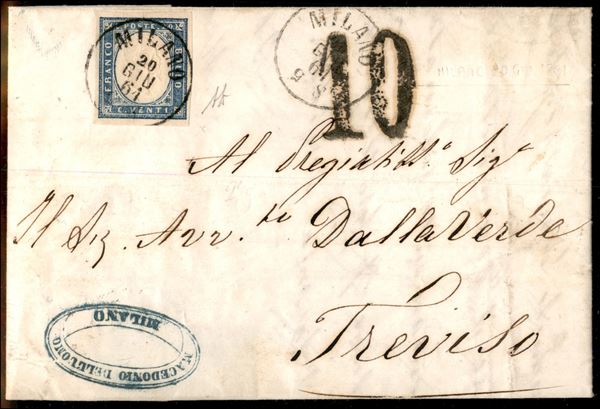 FRANCO
POSTE
BOLLO
C. VENTI
MILANO
20
GIU
61
MILANO
10
Al Pregiatiss.º Sig.r
Il Sig. Avv.to DallaVerde
Treviso
MACEDONIO DELL'UOMO
MILANO